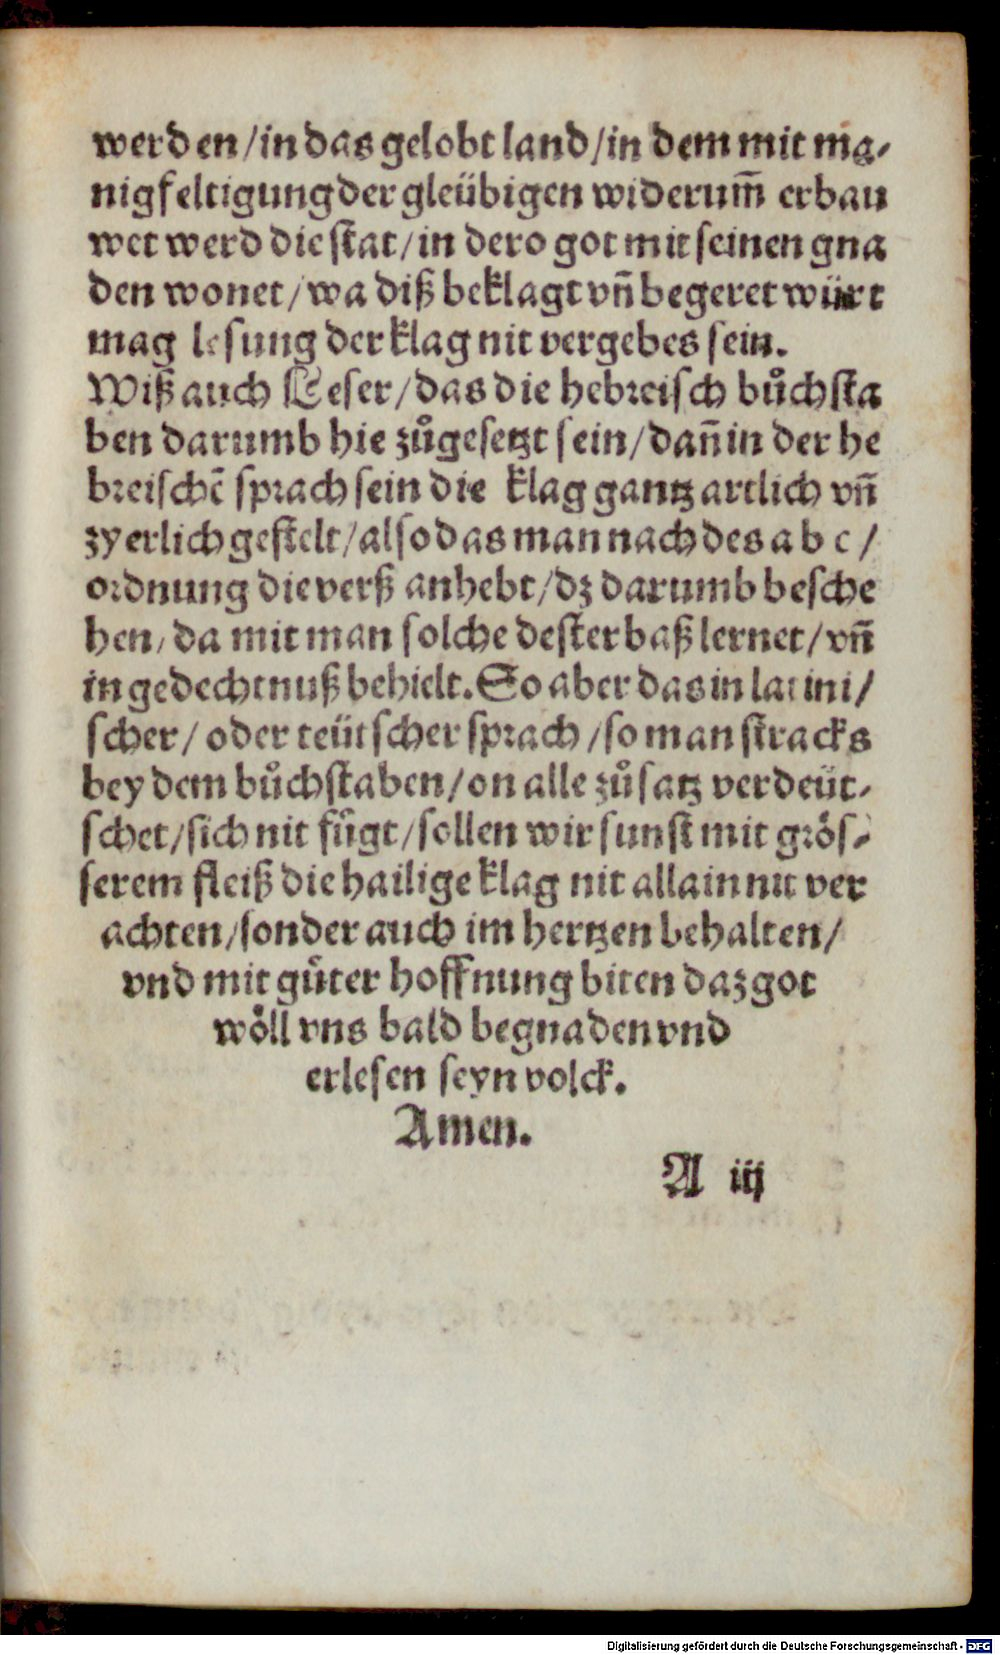 werden/in das gelobt land/in dem mit ma-
nigfeltigung der gleübigen widerum̃ erbau
wet werd die stat/in dero got mit seinen gna
den wonet/wa diß beklagt vñ begeret würt
mag lesung der klag nit vergebes sein.
Wiß auch Leser/das die hebreisch bůchsta
ben darumb hie zůgesetzt sein/dañ in der he
breischē sprach sein die klag gantz artlich vñ
zyerlich gestelt/also das man nach des a b c/
ordnung die verß anhebt/dz darumb besche
hen/da mit man solche dester baß lernet/vñ
in gedechtnuß behielt. So aber das in latini/
scher/oder teütscher sprach/so man stracks
bey dem bůchstaben/on alle zůsatz verdeüt-
schet/sich nit fůgt/sollen wir sunst mit grös-
serem fleiß die hailige klag nit allain nit ver
achten/sonder auch im hertzen behalten/
vnd mit gůter hoffnung biten daz got
wöll vns bald begnaden vnd
erlesen seyn volck.
Amen.
A iij
Digitalisierung gefördert durch die Deutsche Forschungsgemeinschaft - DFG